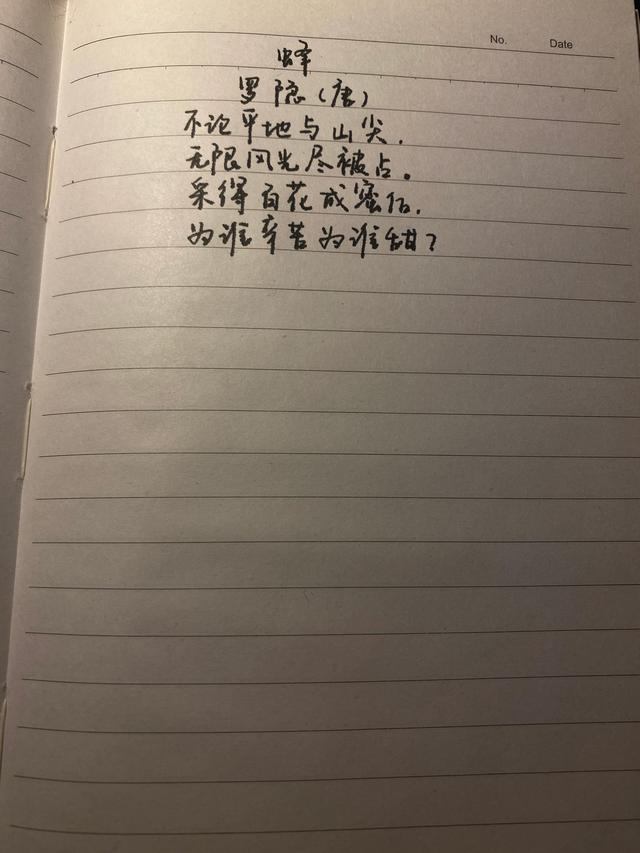 No.
Date
蜂
罗隐（唐）
不论平地与山尖，
无限风光尽被占。
采得百花成蜜后，
为谁辛苦为谁甜？